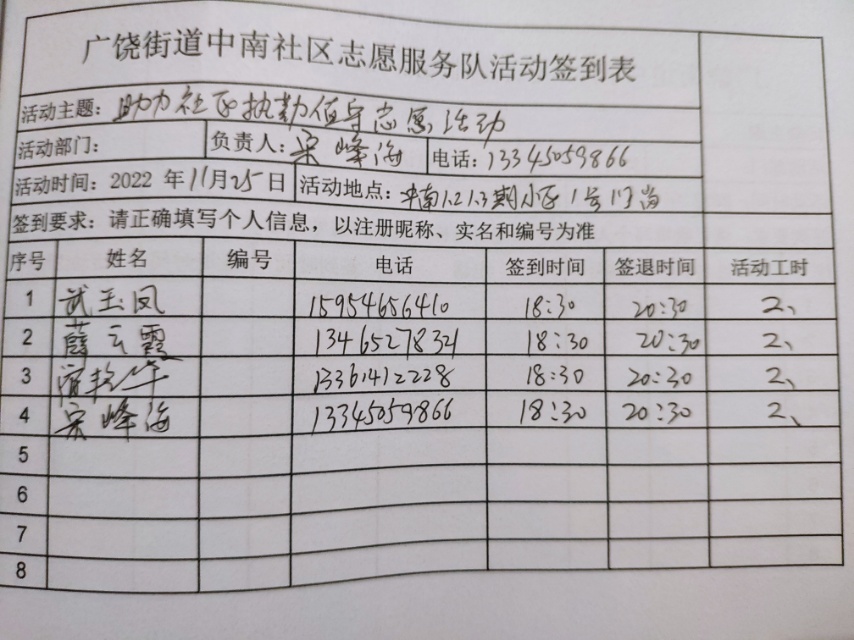 广饶街道中南社区志愿服务队活动签到表
活动主题：助力社区执勤值守志愿活动
活动部门： 负责人：宋峰海 电话：13345059866
活动时间：2022 年11月25日 活动地点：中南1.2.1.3期小区1号门岗
签到要求：请正确填写个人信息，以注册昵称、实名和编号为准
序号 姓名 编号 电话 签到时间 签退时间 活动工时
1 武玉凤 15954656410 18:30 20:30 2、
2 薛云霞 13465278321 18:30 20:30 2、
3 13361412228 18:30 20:30 2、
4 宋峰海 13345059866 18:30 20:30 2、
5
6
7
8